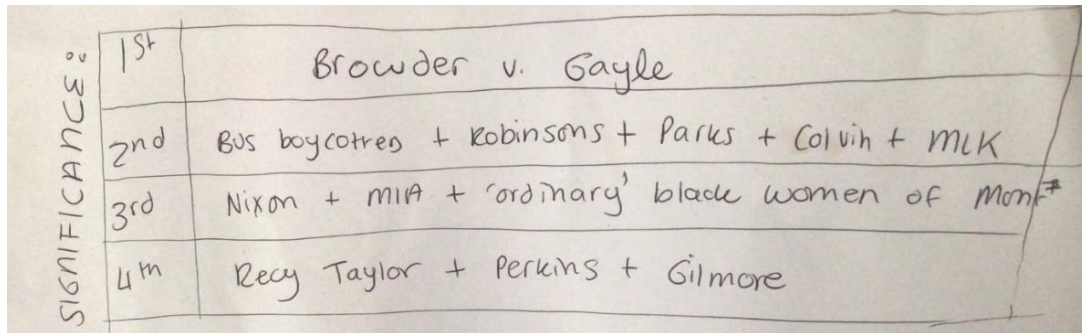 SIGNIFICANCE:
1st Browder v. Gayle
2nd Bus boycotted + Robinsons + Parks + Colvin + MLK
3rd Nixon + MIA + 'ordinary' black women of Mont
4th Recy Taylor + Perkins + Gilmore